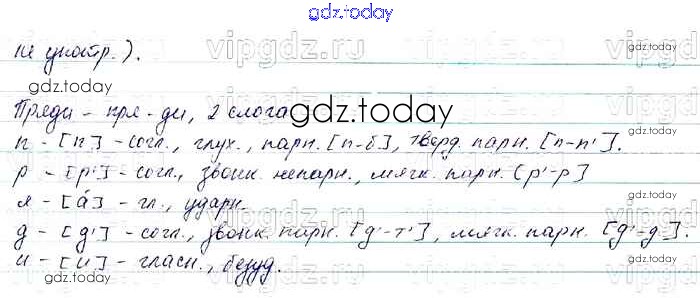 gdz.today
не употр.).
Пряди - пря-ди, 2 слога
gdz.today
п - [п] - согл., глух., парн. [п-б], тверд. парн. [п-п'].
р - [р'] - согл., звонк. непарн., мягк. парн. [р'-р]
я - [а́] - гл., ударн.
д - [д'] - согл., звонк. парн. [д'-т'], мягк. парн. [д'-д].
и - [и] - гласн., безуд.
gdz.today
vipgdz.ru